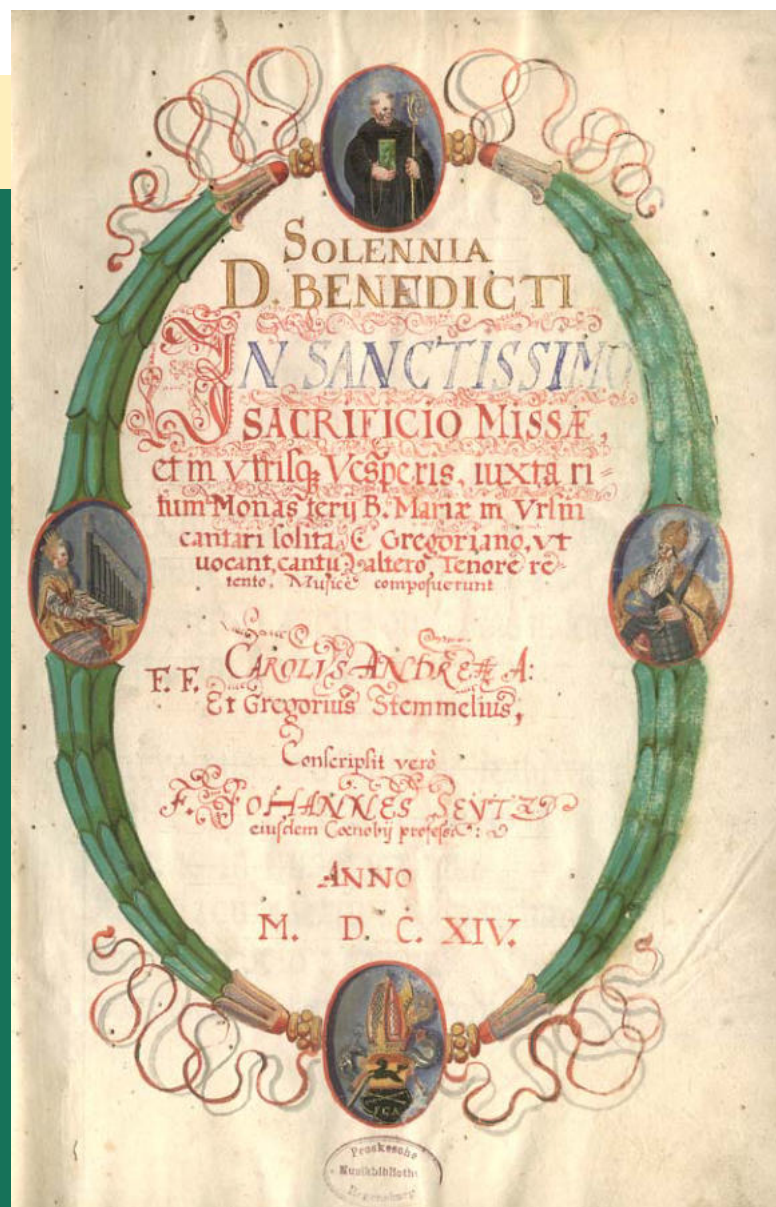 SOLENNIA
D. BENEDICTI
IN SANCTISSIMO
SACRIFICIO MISSÆ,
et in vtrisq; Vesperis, iuxta ri=
tum Monasterij B. Mariæ in Vrsin
cantari solita, È Gregoriano, vt
uocant, cantu altero Tenore re=
tento. Musicè composuerunt
F. F. CAROLVS ANDREÆ A:
Et Gregorius Stemmelius,
Conscripsit verò
F. IOHANNES SEVTZ
eiusdem Cœnobij professus:
ANNO
M. D. C. XIV.
F C A
Proskesche
Musikbiblioth
Regensburg